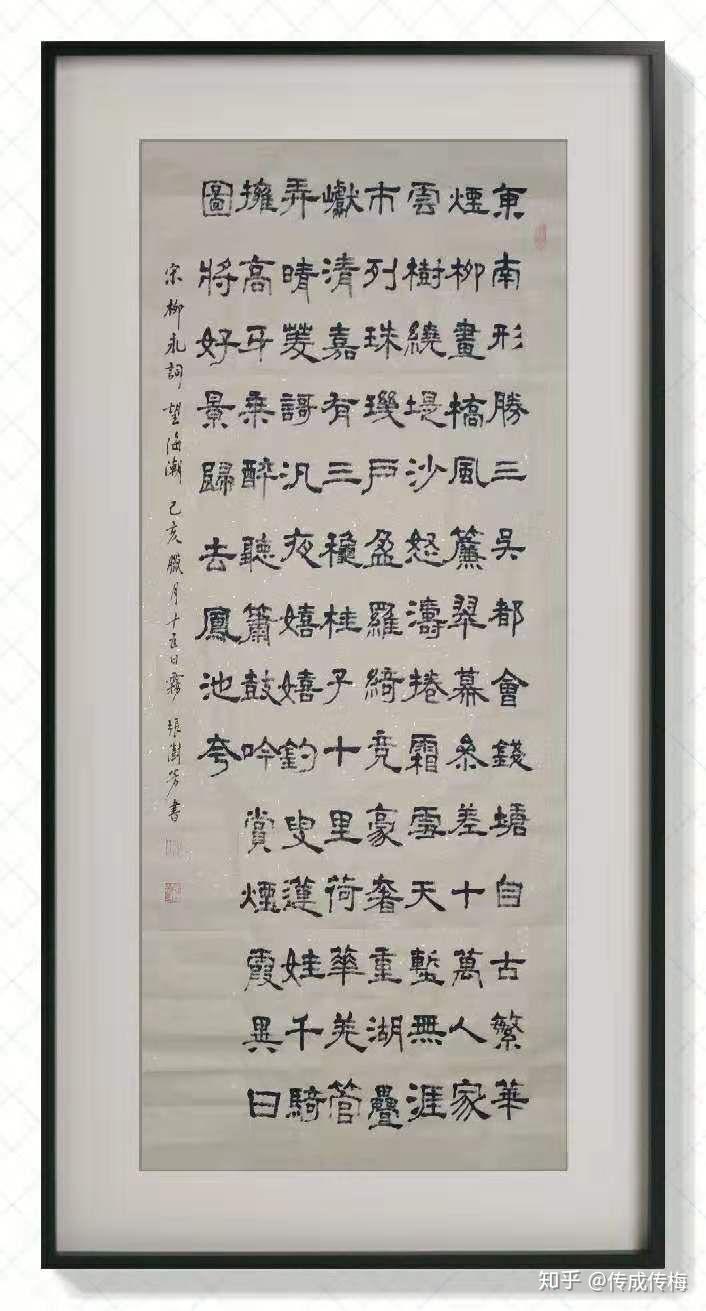 東南形勝三吳都會錢塘自古繁華
煙柳畫橋風簾翠幕參差十萬人家
雲樹繞堤沙怒濤捲霜雪天塹無涯
市列珠璣戶盈羅綺竞豪奢重湖疊
巘清嘉有三穐桂子十里荷華羌管
弄晴菱謌汎夜嬉嬉釣叟蓮娃千騎
擁高牙乘醉聽簫鼓吟賞煙霞異日
圖將好景歸去鳳池夸
宋柳永詞望海潮 己亥臘月十五日霧 張澍芳書
知乎 @传成传梅